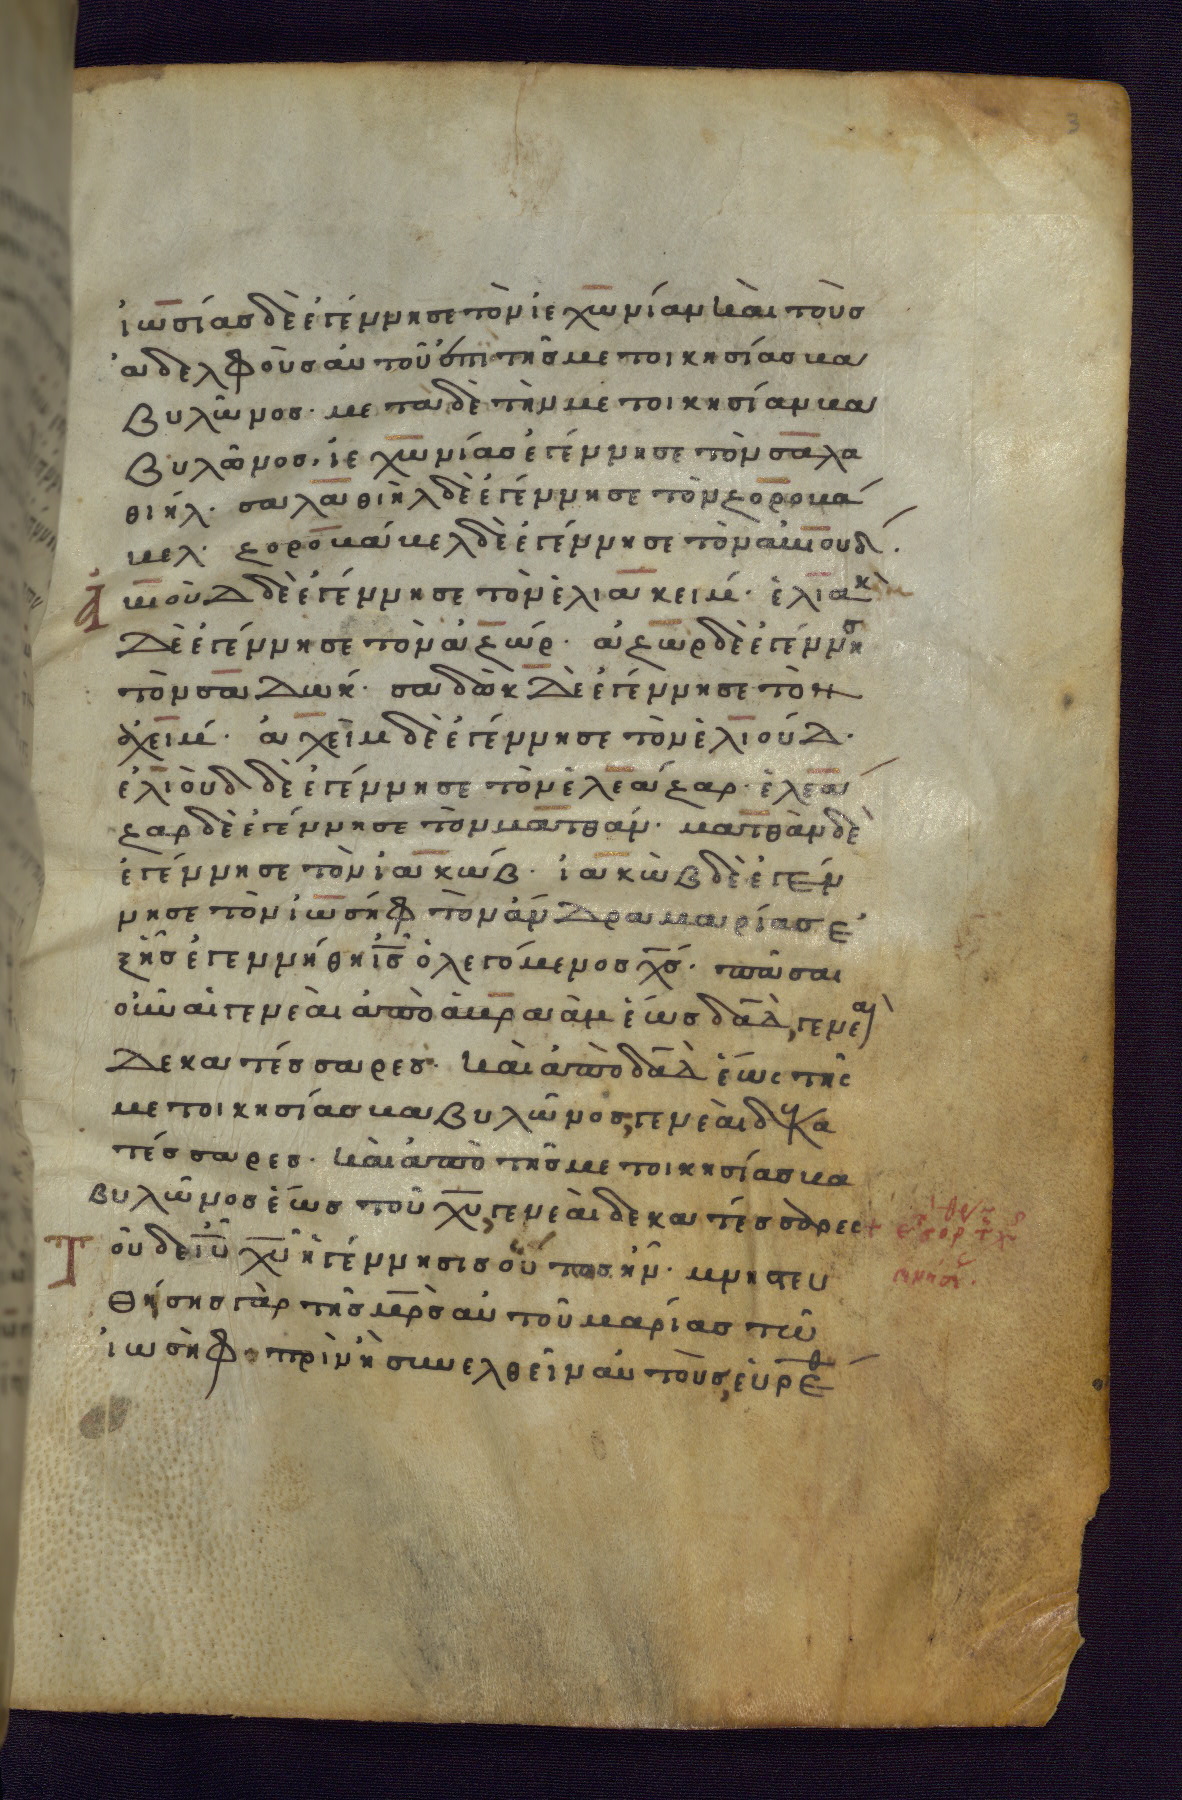 3
ἰωσίας δὲ ἐγέννησε τὸν ἰεχωνίαν καὶ τοὺς
ἀδελφοὺς αὐτοῦ ἐπὶ τῆς μετοικησίας βα
βυλῶνος· μετὰ δὲ τὴν μετοικησίαν βα
βυλῶνος, ἰεχωνίας ἐγέννησε τὸν σαλα
θιήλ· σαλαθιὴλ δὲ ἐγέννησε τὸν ζοροβά
βελ· ζοροβάβελ δὲ ἐγέννησε τὸν ἀβιούδ·
ἀβιοὺδ δὲ ἐγέννησε τὸν ἐλιακείμ· ἐλιακ
δὲ ἐγέννησε τὸν ἀζώρ· ἀζὼρ δὲ ἐγέννησ
τὸν σαδώκ· σαδὼκ δὲ ἐγέννησε τὸν
ἀχείμ· ἀχεὶμ δὲ ἐγέννησε τὸν ἐλιούδ·
ἐλιοὺδ δὲ ἐγέννησε τὸν ἐλεάζαρ· ἐλεά
ζαρ δὲ ἐγέννησε τὸν ματθάν· ματθὰν δὲ
ἐγέννησε τὸν ἰακώβ· ἰακὼβ δὲ ἐγέν
νησε τὸν ἰωσὴφ τὸν ἄνδρα μαρίας ἐ
ξ ἧς ἐγεννήθη ἰς ὁ λεγόμενος χς· πᾶσαι
οὖν αἱ γενεαὶ ἀπὸ ἀβραὰμ ἕως δαδ, γενεαὶ
δεκατέσσαρες· καὶ ἀπὸ δαδ ἕως τῆς
μετοικησίας βαβυλῶνος, γενεαὶ δεκα
τέσσαρες· καὶ ἀπὸ τῆς μετοικησίας βα
βυλῶνος ἕως τοῦ χυ, γενεαὶ δεκατέσσαρες
Τοῦ δὲ ιυ χυ ἡ γέννησις οὕτως ἦν· μνηστευ
θήσης γὰρ τῆς μρς αὐτοῦ μαρίας τῶ
ἰωσὴφ· πρὶν ἢ συνελθεῖν αὐτοὺς, εὑρέθ